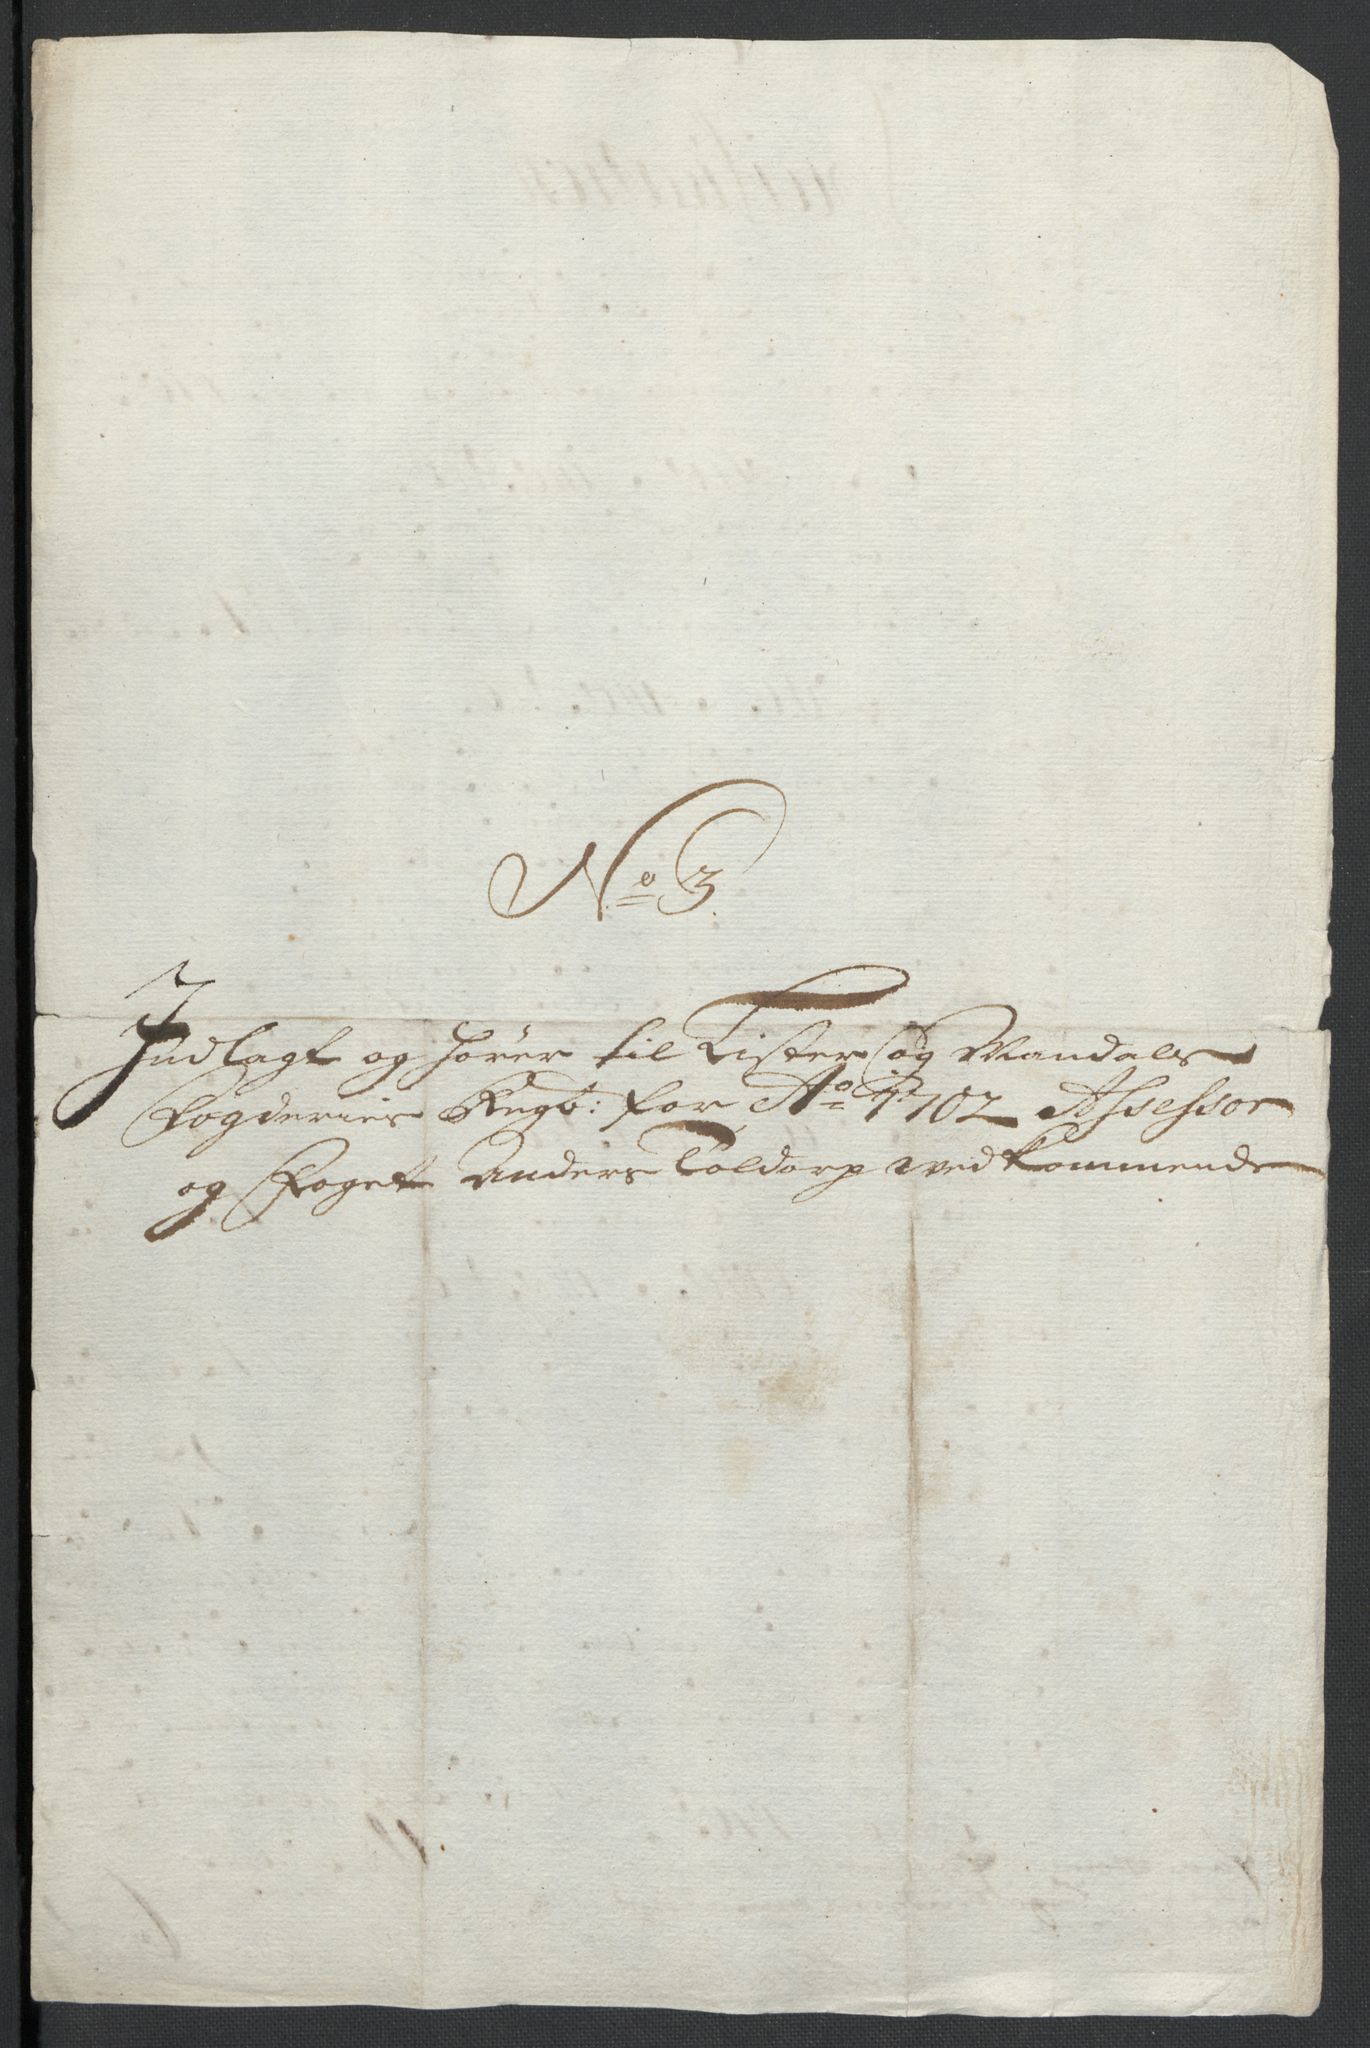 No 3.
Indlagt og hörer til Lister og Mandals
Fogderies Regb: for Ao 1702 Assessor
og Foget Anders Toldorp vedkommende